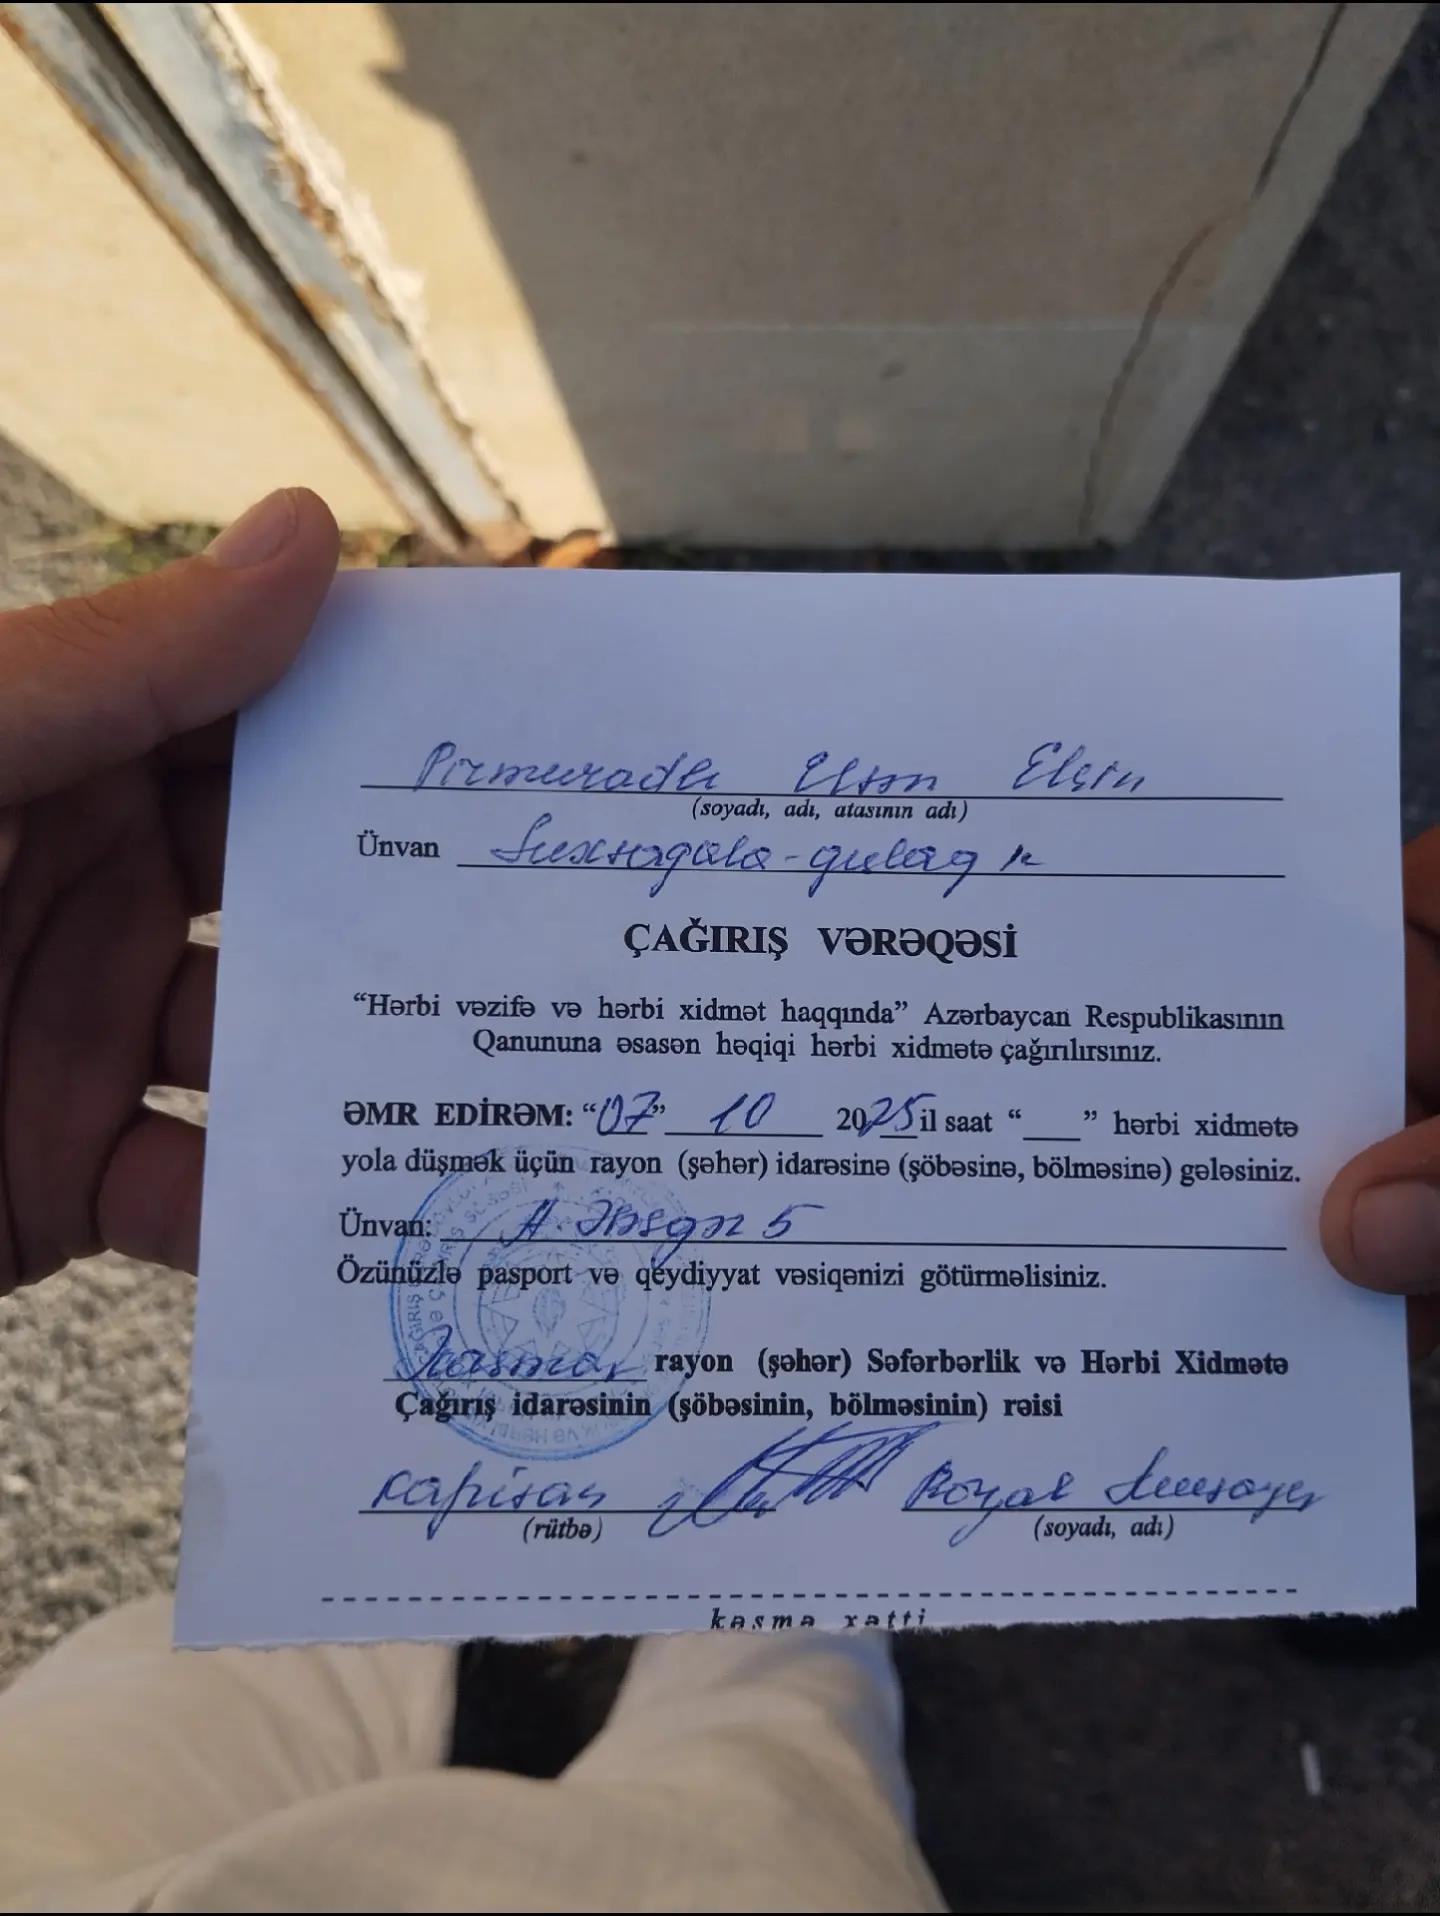 Pirmuradlı Elşən Elçin
(soyadı, adı, atasının adı)
Ünvan
ÇAĞIRIŞ VƏRƏQƏSİ
“Hərbi vəzifə və hərbi xidmət haqqında” Azərbaycan Respublikasının
Qanununa əsasən həqiqi hərbi xidmətə çağırılırsınız.
ƏMR EDİRƏM: “07” 10 2025 il saat “___” hərbi xidmətə
yola düşmək üçün rayon (şəhər) idarəsinə (şöbəsinə, bölməsinə) gələsiniz.
Ünvan: 5
Özünüzlə pasport və qeydiyyat vəsiqənizi götürməlisiniz.
rayon (şəhər) Səfərbərlik və Hərbi Xidmətə
Çağırış idarəsinin (şöbəsinin, bölməsinin) rəisi
kapitan Royal
(rütbə) (soyadı, adı)
kəsmə xətti